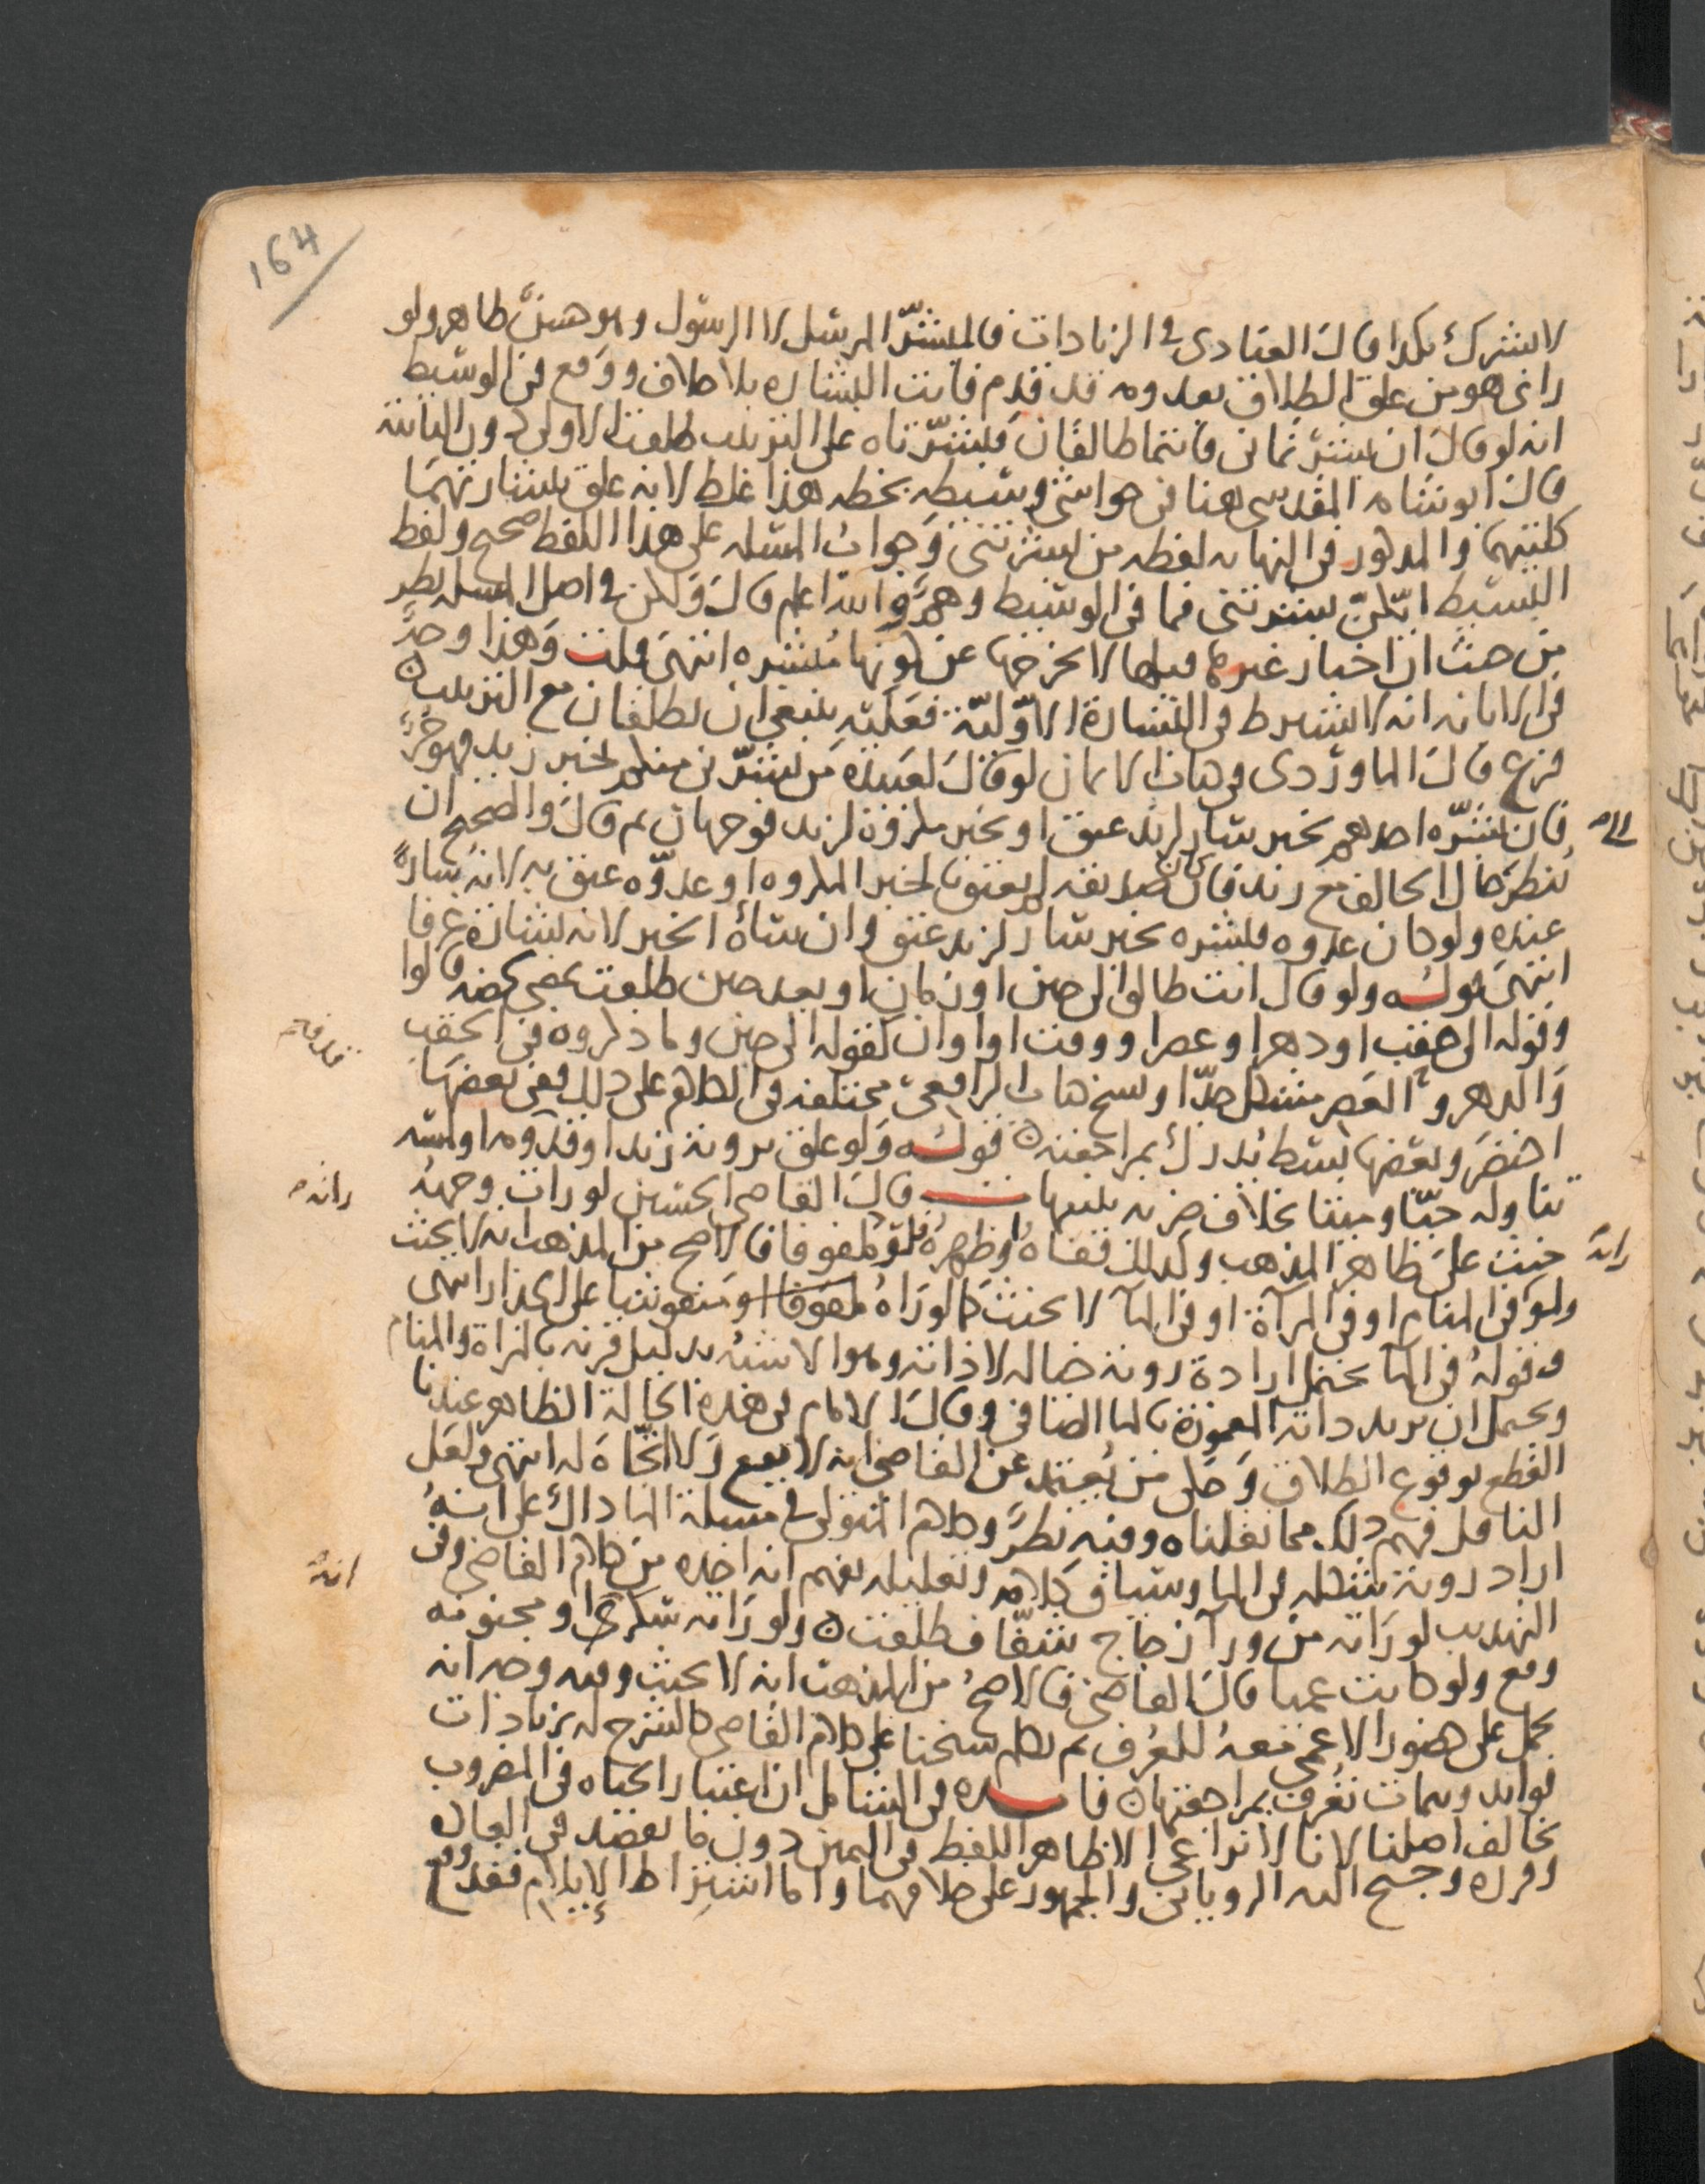 164
لا بشرك هكذا قال العبادي في الزيادات فالمبشر المرسل لا الرسول وهو حسن ظاهر ولو
راى هو من علق الطلاق بقدومه قد قدم فاتت البشارة بلا طلاق ووقع في الوسيط
انه لو قال ان بشرتماني فانتما طالقان فبشرتاه على الترتيب طلقت الاولى دون الثانية
قال ابو شامة المقدسي هنا في حواشي وسيطه بخطه هذا غلط لانه علق ببشارتهما
كلتيهما والمذكور في النهاية لفظه من بشرتني وجواب المسلة على هذا اللفظ صحيح ولفظ
البسيط ايتكن بشرتني فما في الوسيط وهم والله اعلم قال ولكن في اصل المسلة نظر
من حيث ان اخبار غيرها قبلها لا يخرجها عن كونها مبشرة انتهى قلت وهذا وجه
في الابانة انه لا يشترط في البشارة الاولية فعليه ينبغي ان تطلقان مع الترتيب
فرع قال الماوردي في كتاب الايمان لو قال لعبيده من بشرني منكم بخبر زيد فهو حر
فان بشره احدهم بخبر سار لزيد عتق او بخبر مكروه لزيد فوجهان ثم قال والصحيح ان
ينظر حال الحالف مع زيد فان كان صديقه لم يعتق بالخبر المكروه او عدوه عتق به لانه سارة
عنده ولو كان عدوه فبشره بخبر سار لزيد عتق وان ساه الخبر لانه بشارة عرفا
انتهى قوله ولو قال انت طالق الى حين او زمان او بعد حين طلقت بمضي لحظة قالوا
وقوله الى حقب او دهر او عصر او وقت او اوان كقوله الى حين وما ذكروه في الحقب
والدهر والعصر مشكل جدا ونسخ كتاب الرافعي مختلفة في الكلام على ذلك ففي بعضها
اختصر وبعضها بسط يدرك بمراجعته قوله ولو علق برؤية زيد او قدومه او لمسه
تناوله حيا وميتا بخلاف ضربه قال القاضي الحسين لو رات وجهه
حنث على ظاهر المذهب وكذلك قفاه او ظهره فلو ملفوفا فالاصح من المذهب انه لا يحنث
ولو في المنام او في المرآة او في الماء لا يحنث كما لو راه ملفوفا او منقوشا على الجدار انتهى
وقوله في الماء يحتمل ارادة رؤية خياله لا ذاته وهو الاشبه بدليل قرنه بالمرآة والمنام
ويحتمل ان يريد ذاته المغمورة بالماء الصافي وقال الامام في هذه الحالة الظاهر عندنا
القطع بوقوع الطلاق وحكى من يعتمد عن القاضي انه لا يقع ولا اتجاه له انتهى ولعل
الناقل فهم ذلك مما نقلناه وفيه نظر وكلام المتولي في مسلة الماء دال على انه
اراد رؤية شكله في الماء وسياق كلامه وتعليله يفهم انه اخذه من كلام القاضي وفي
التهذيب لو راته من ورآ زجاج شفاف طلقت ولو راته سكرى او مجنونة
وقع ولو كانت عميا قال القاضي فالاصح من المذهب انه لا يحنث وفيه وجه انه
يحمل على حضور الاعمى معه للعرف ثم تكلم شيخنا على كلام القاضي كالشرح له بزيادات
فوايد وبيانات تعرف بمراجعتها فايدة في الشامل ان اعتبار الحياة في المضروب
يخالف اصلنا لانا لا نراعي الا ظاهر اللفظ في اليمين دون ما يقصد في العادة
وقربه وجنح اليه الروياني والجمهور على خلافهما واما اشتراط الايلام فقد وقع
رانه
انه